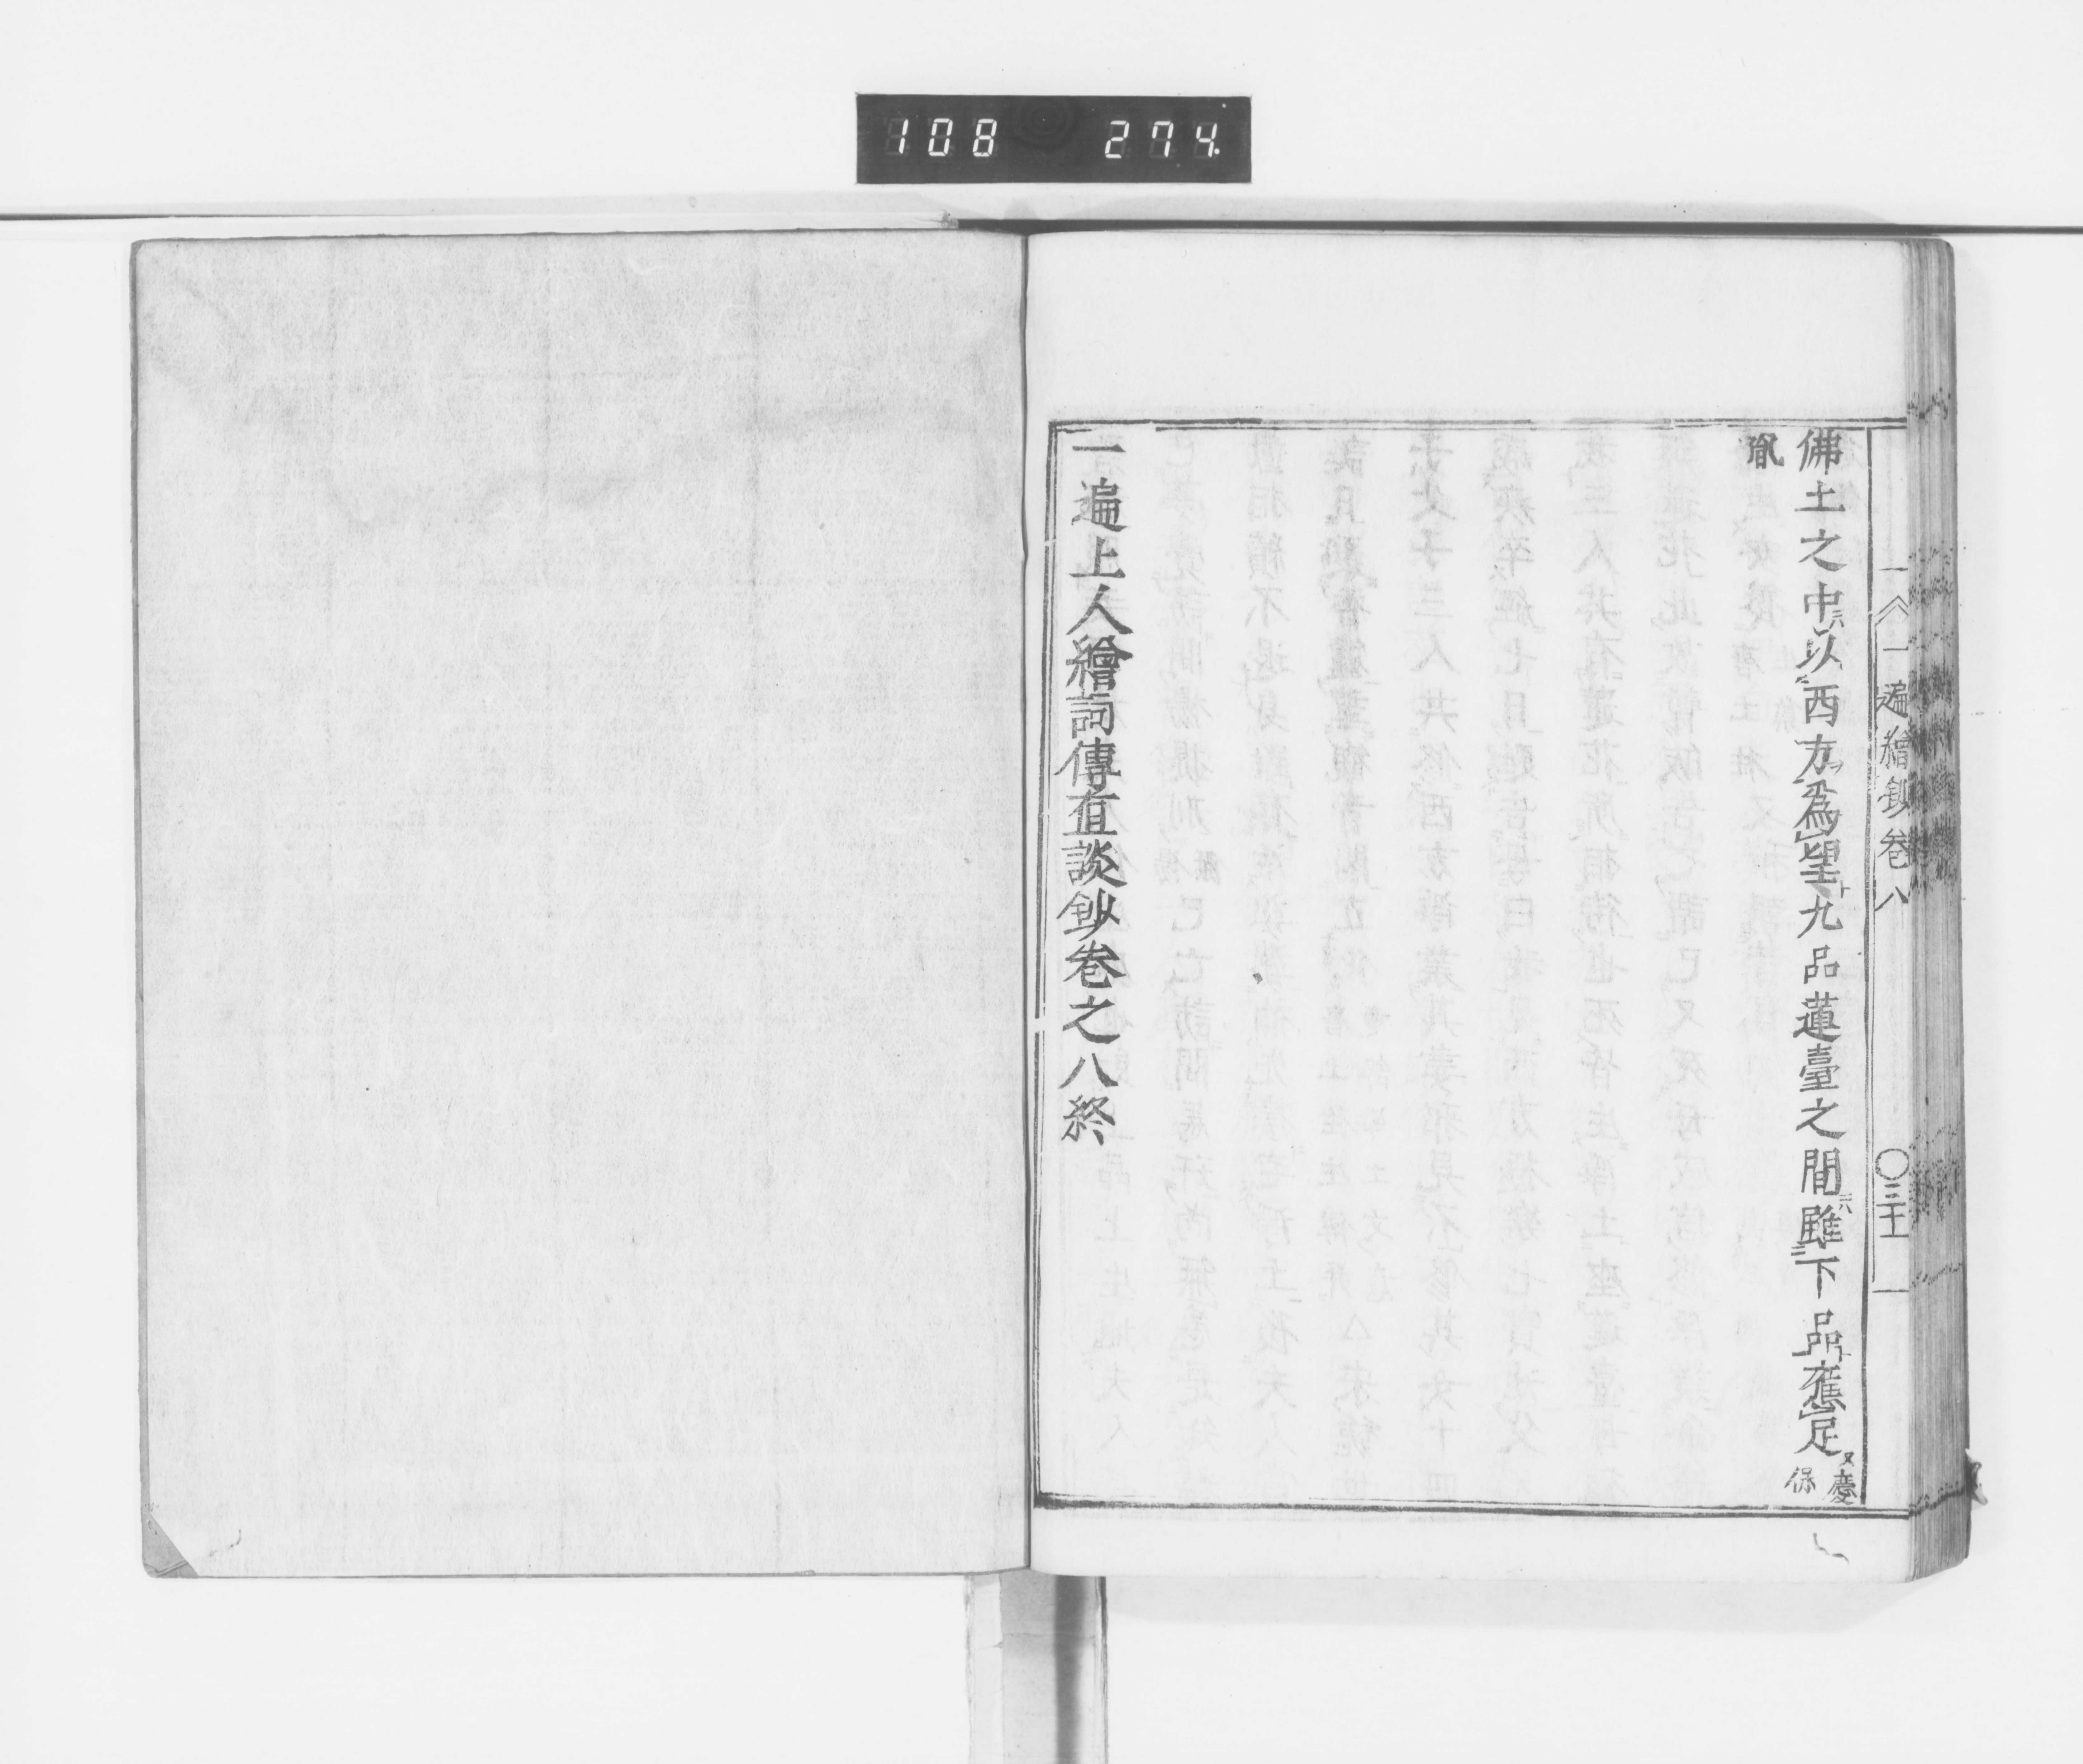 108 274
一遍繪鈔卷八 〇三十一
佛土之中以西方為望九品蓮臺之間雖下品應足慶保
胤
一遍上人繪詞傳直談鈔卷之八終